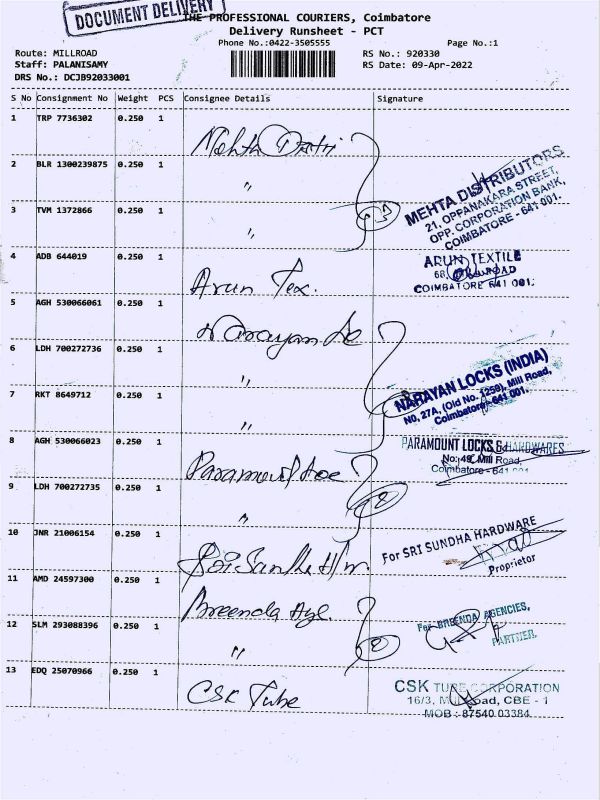 DOCUMENT DELIVERY
THE PROFESSIONAL COURIERS, Coimbatore
Delivery Runsheet - PCT
Phone No.:0422-3505555
Page No.:1
Route: MILLROAD
RS No.: 920330
Staff: PALANISAMY
RS Date: 09-Apr-2022
DRS No.: DCJB92033001
S No Consignment No Weight PCS Consignee Details Signature
1 TRP 7736302 0.250 1
Mehta
2 BLR 1300239875 0.250 1 "
MEHTA DISTRIBUTORS
21, OPPANAKARA STREET,
OPP. CORPORATION BANK,
COIMBATORE - 641 001.
3 TVM 1372866 0.250 1 "
3
4 ADB 644019 0.250 1 Arun Tex.
ARUN TEXTILE
COIMBATORE 641 001.
5 AGH 530066061 0.250 1 Narayan
6 LDH 700272736 0.250 1 "
NARAYAN LOCKS (INDIA)
NO, 27A, (Old No. 1259), Mill Road,
Coimbatore - 641 001.
7 RKT 8649712 0.250 1 "
8 AGH 530066023 0.250 1 Paramount
PARAMOUNT LOCKS & HARDWARES
No: 49, Mill Road,
Coimbatore - 641 001
9 LDH 700272735 0.250 1 "
2
10 JNR 21006154 0.250 1 Sri Sundha H/w.
For SRI SUNDHA HARDWARE
Proprietor
11 AMD 24597300 0.250 1 Breenda Age.
For BREENDA AGENCIES,
PARTNER.
12 SLM 293088396 0.250 1 "
2
13 EDQ 25070966 0.250 1 CSK Tube
CSK TUBE CORPORATION
16/3, Mill Road, CBE - 1
MOB : 87540 03384